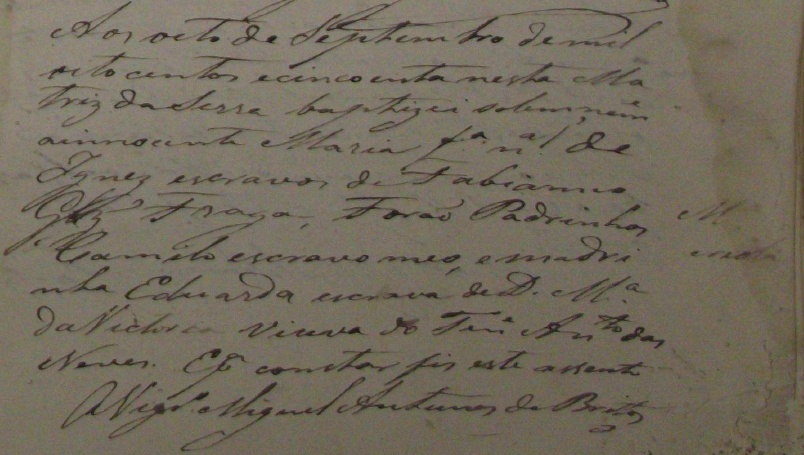 Aos oito de Septembro de mil
oito centos e cincoenta nesta Ma
triz da Serra baptizei solemnem.e
a innocente Maria f.ª n.al de
Ignez escravos de Fabianno
Glz' Fraga, Forão Padrinhos
Camilo escravo meo, e madri
nha Eduarda escrava de D. M.ª
da Victoria viuva do Ten.e An.to das
Neves. E p.ª constar fis este assento
O Vigr.º Miguel Antunes de Brito
M